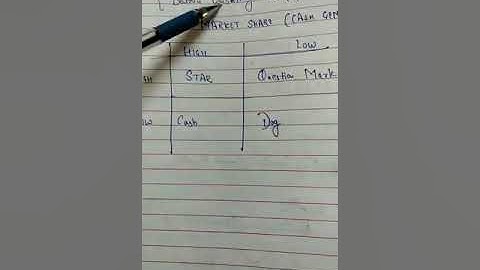 MARKET SHARE (CASH GEN
HIGH LOW
STAR Question Mark
Cash Dog